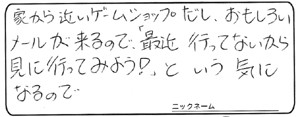 家から近いゲームショップだし、おもしろい
メールが来るので、「最近 行ってないから
見に行ってみよう!」と いう 気に
なるので
ニックネーム